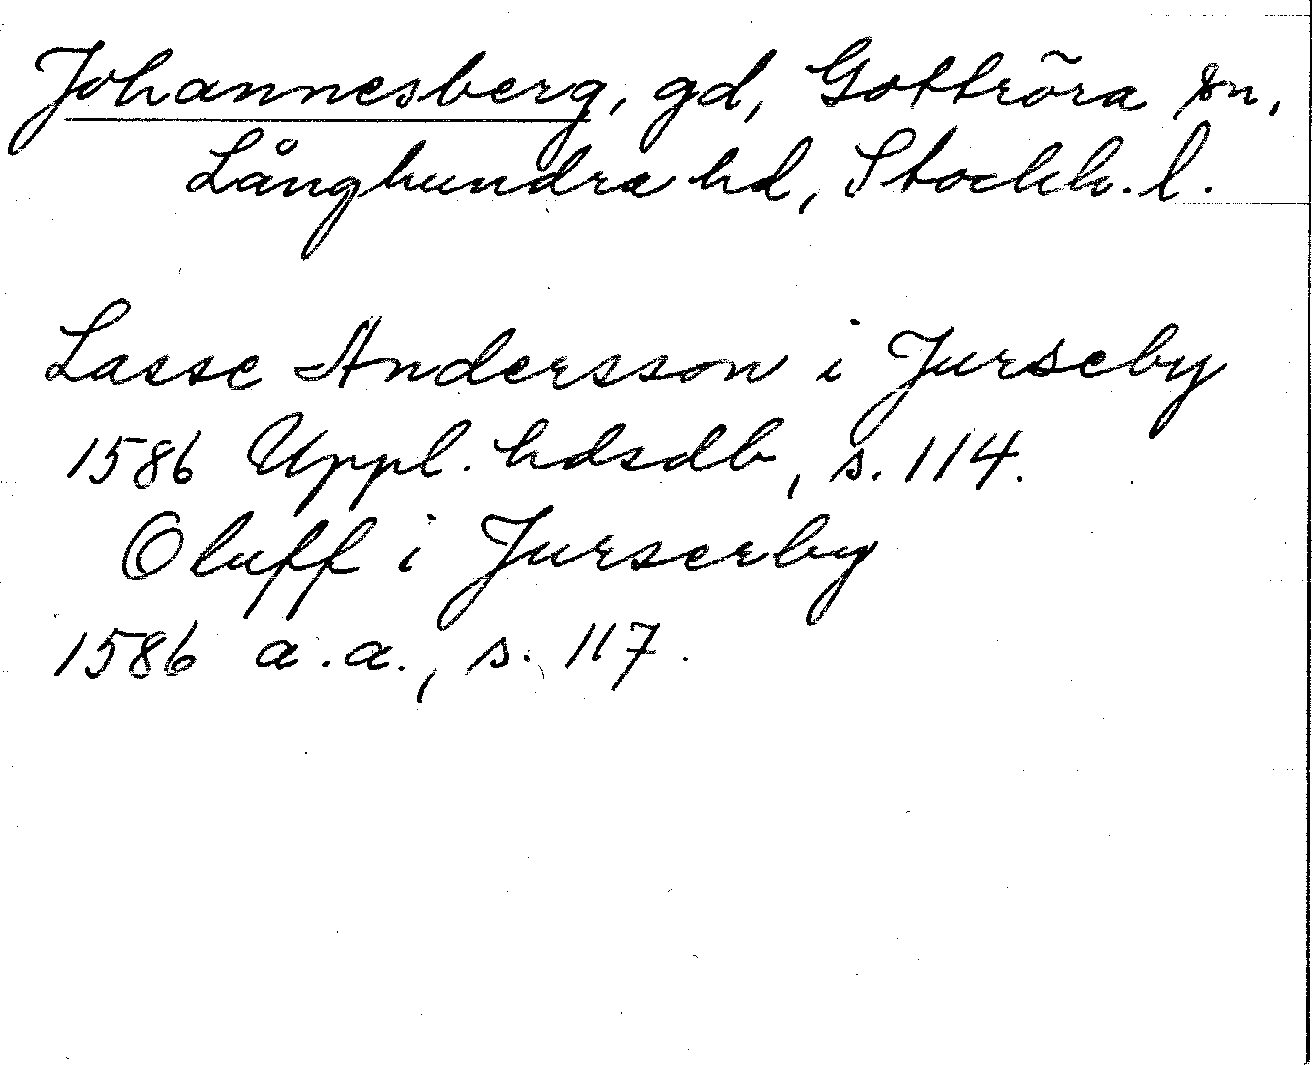 Johannesberg, gd, Gottröra sn,
Långhundra hd, Stockh. l.
Lasse Andersson i Jurseby
1586 Uppl. hdsdb, s. 114.
Oluff i Jurserby
1586 a.a., s. 117.